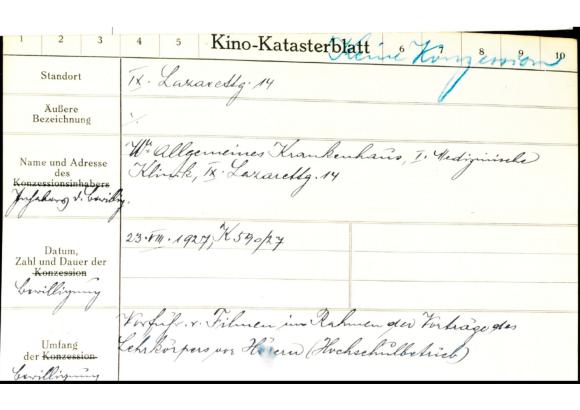 1 2 3 4 5 Kino-Katasterblatt 6 7 8 9 10
Kleine Konzession
Standort
IX. Lazarettg. 14
Äußere
Bezeichnung
%.
Name und Adresse
des
Konzessionsinhabers
Inhabers d. Bewillig.
Wr. Allgemeines Krankenhaus, I. Medizinische
Klinik, IX. Lazarettg. 14
Datum,
Zahl und Dauer der
Konzession
Bewilligung
23. VIII. 1927, K 590/27
Umfang
der Konzession
Bewilligung
Vorführ. v. Filmen im Rahmen der Vorträge des
Lehrkörpers vor Hörern (Hochschulbetrieb)